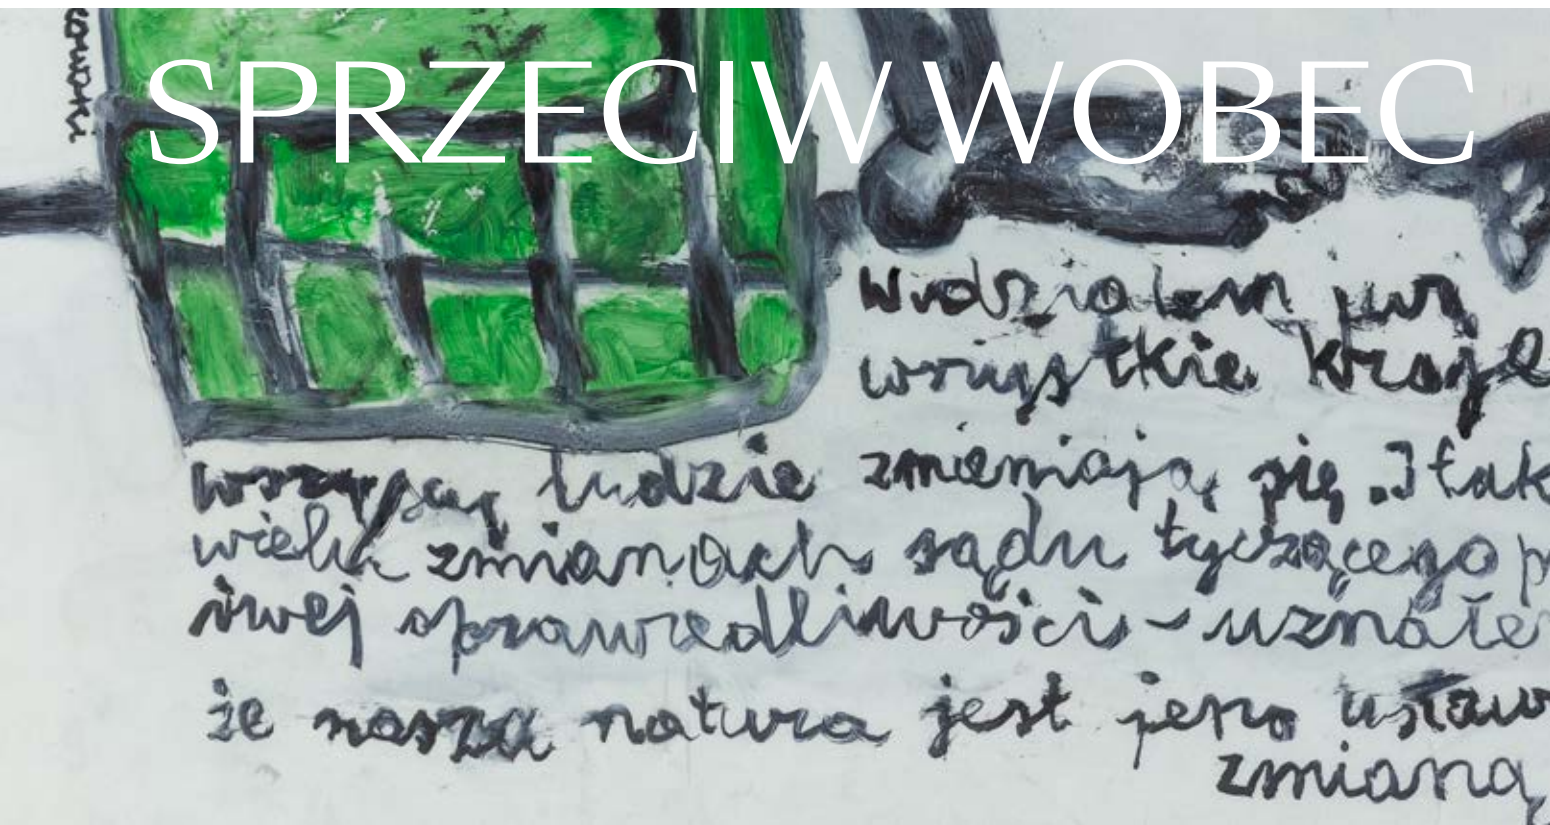 SPRZECIW WOBEC
Widziałem już
wszystkie kraje
wszyscy ludzie zmieniają się. I tak
wielu zmianach sądu tyczącego p
iwej sprawiedliwości - uznałe
że nasza natura jest jeno ustaw
zmianą